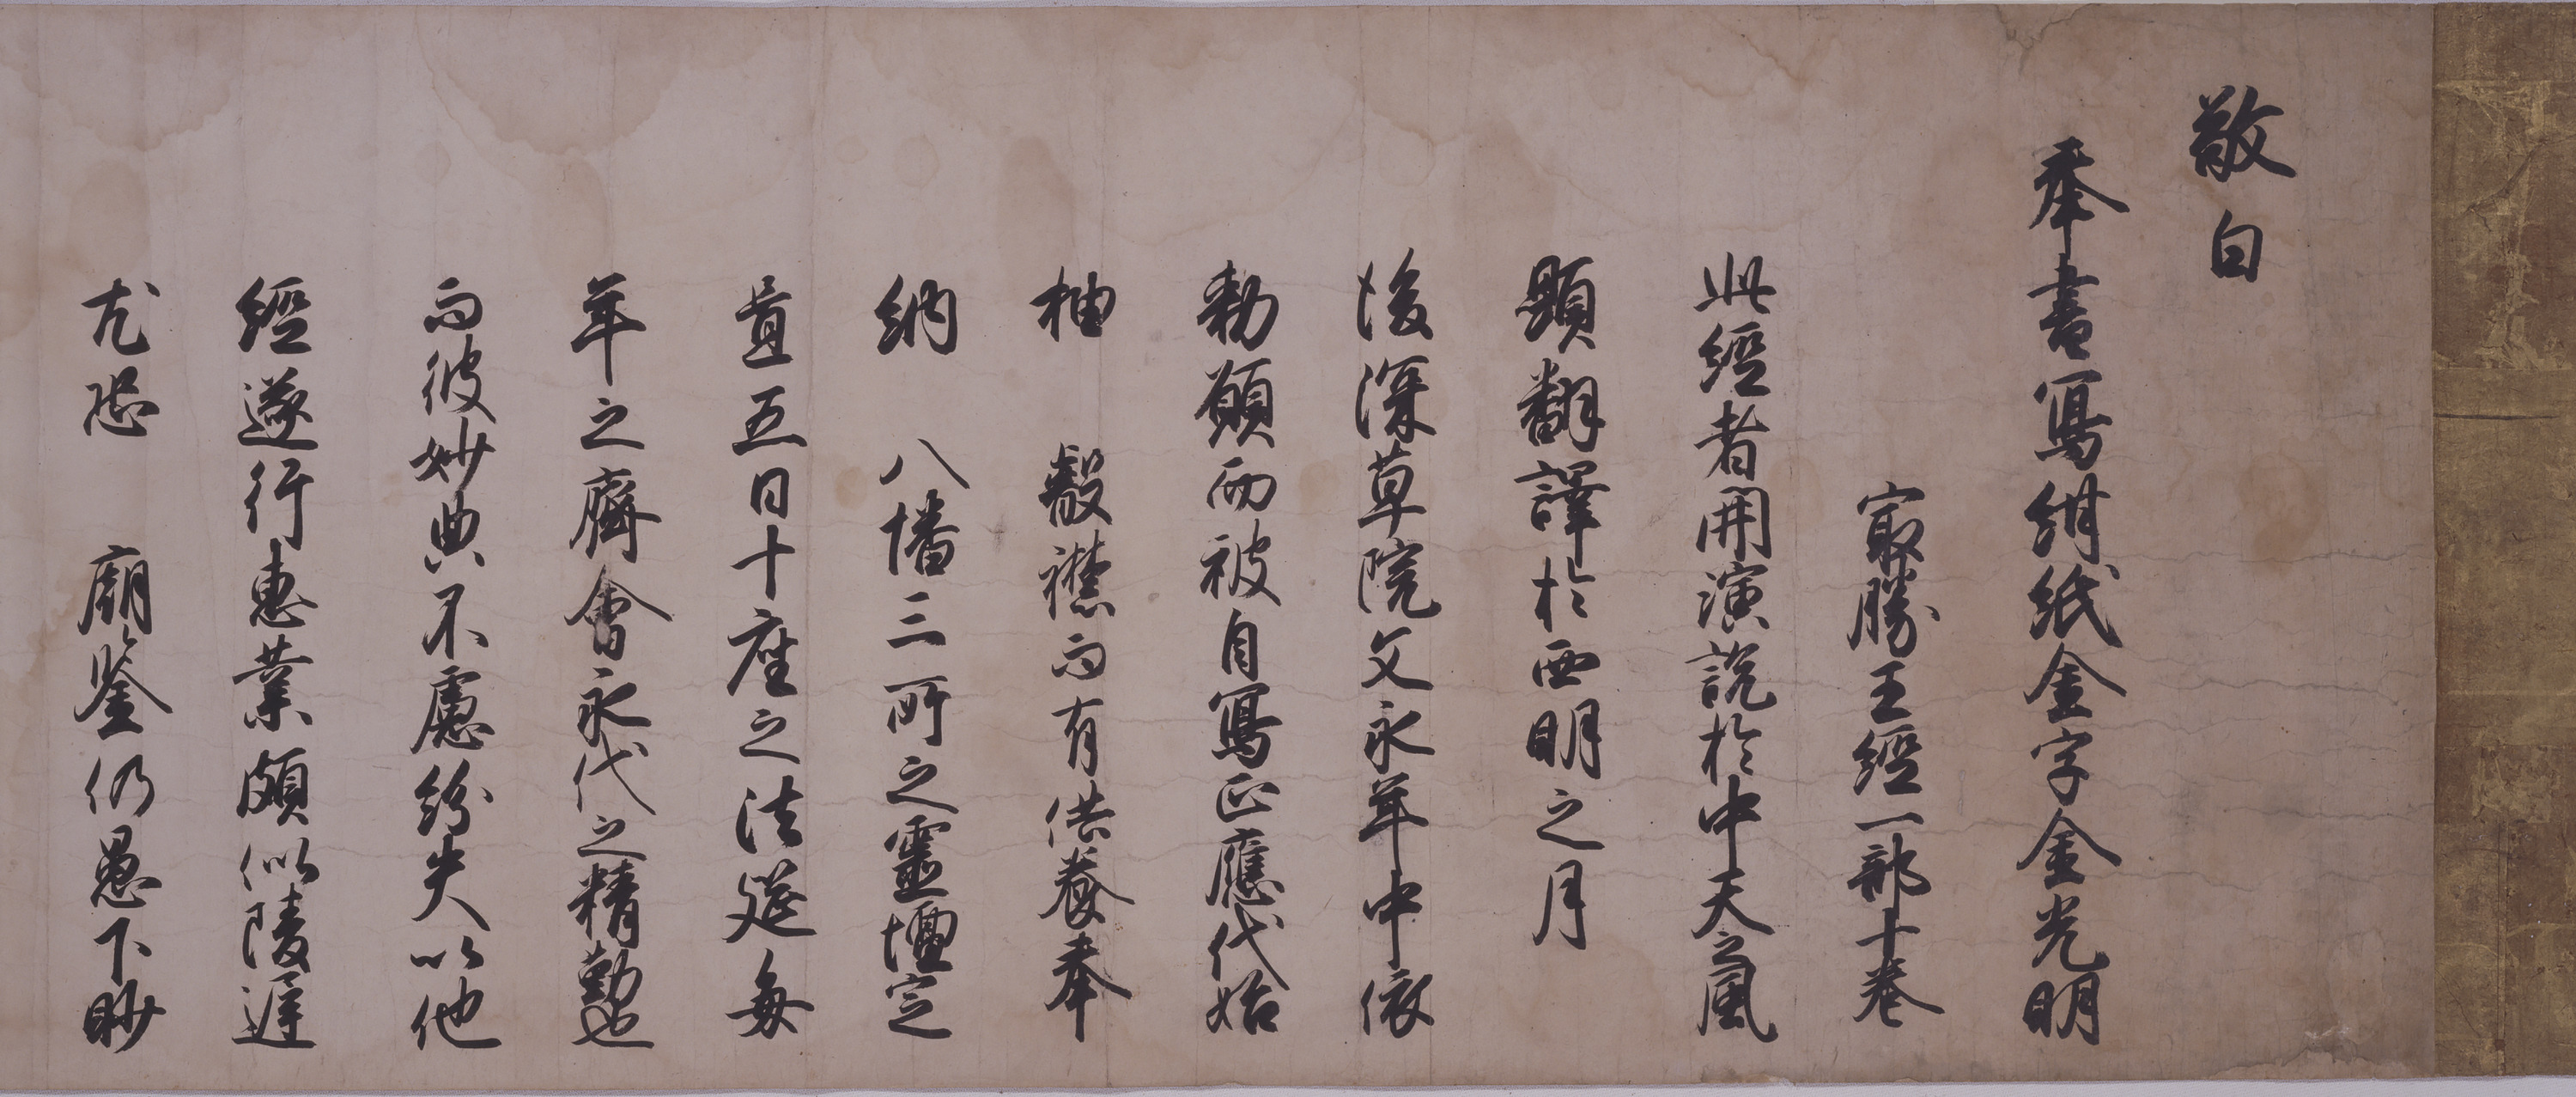 敬白
奉書寫紺紙金字金光明
寂勝王經一部十卷
此經者開演説於中天之風
顕翻譯於西明之月
後深草院文永年中依
勅願而被自寫正應代始
抽 叡襟而有供養奉
納 八幡三所之靈壇定
置五日十座之法莚每
年之齋會永代之精勤也
而彼妙典不慮紛失以他
經遂行惠業頗似陵遅
尤恐 廟鋻仍愚下眇